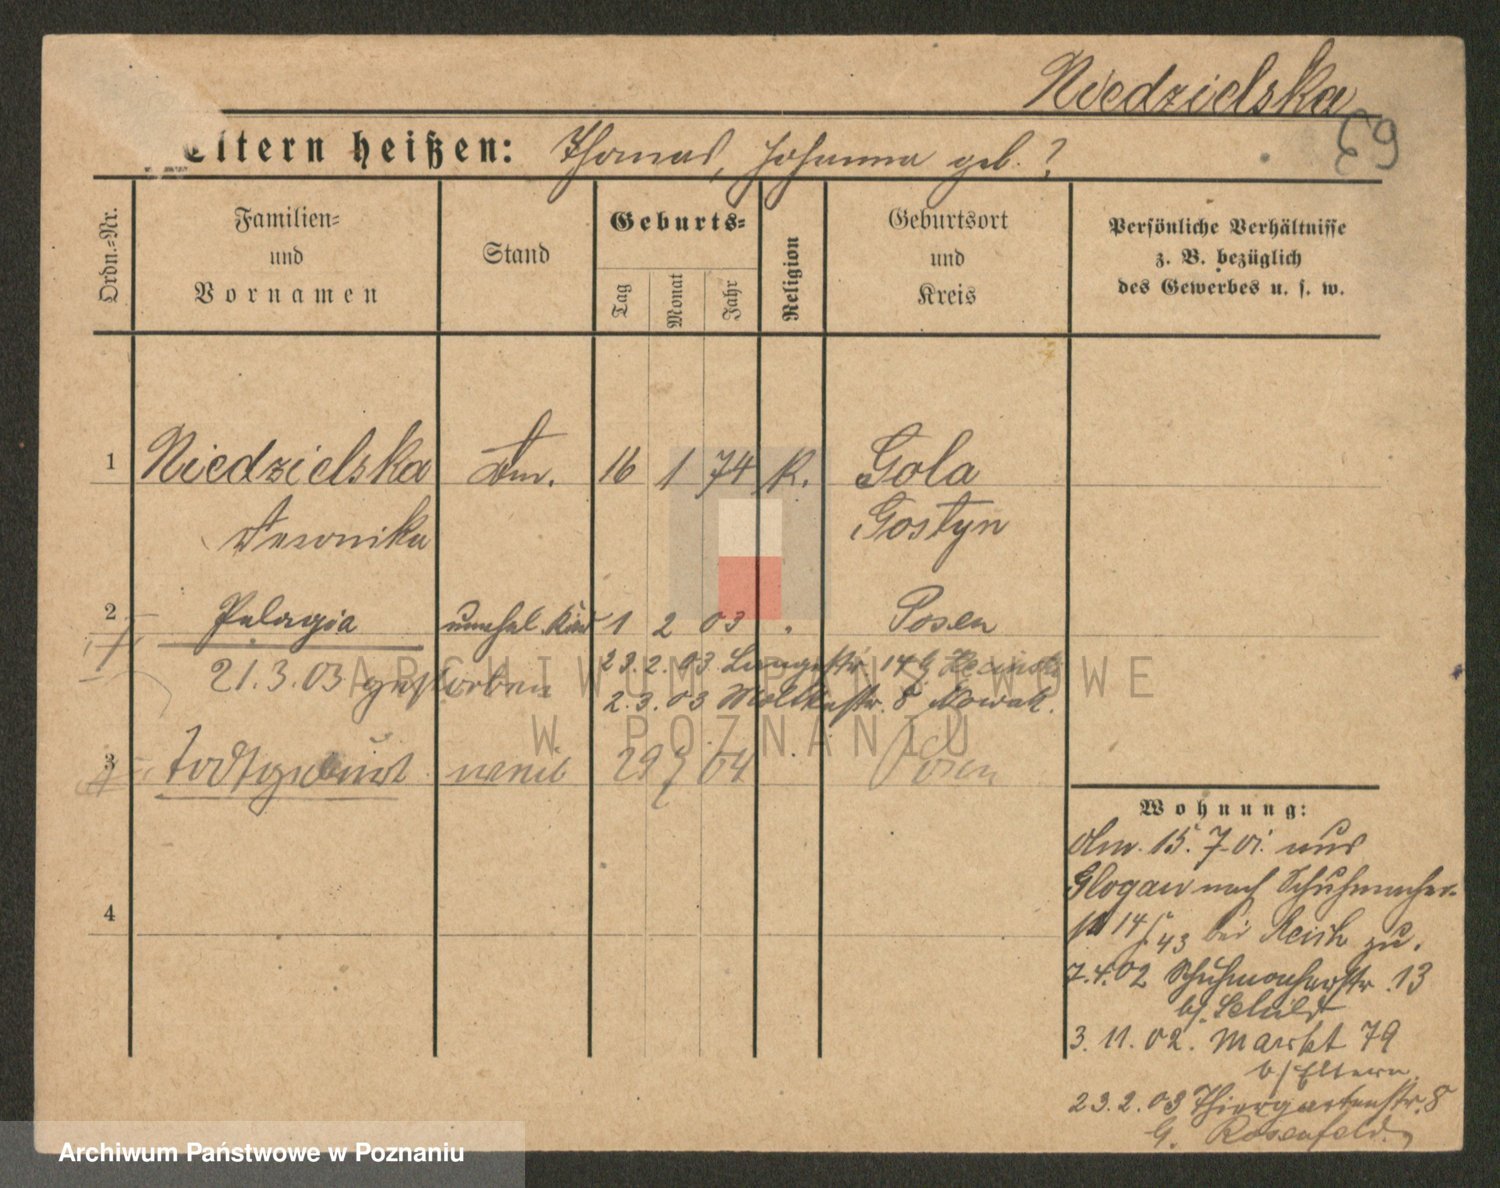 Niedzielska
63
Eltern heißen: Thomas, Johanna geb. ?
Ordn.=Nr.
Familien=
und
Vornamen
Stand
Geburts=
Tag
Monat
Jahr
Religion
Geburtsort
und
Kreis
Persönliche Verhältnisse
z. B. bezüglich
des Gewerbes u. s. w.
1 Niedzielska 16 1 74 K. Gola
Veronika Gostyn
2 Pelagia unehel. Kind 1 2 03 Posen
21.3.03 gestorben
23.2.03 Langestr. 14
2.3.03 Moltkestr. 8 Nowak.
3 Todtgeburt 29 04 Posen
4
Wohnung:
15. 7. 01. aus
Glogau nach Schuhmacher-
14 bei zu.
7.4.02 Schuhmacherstr. 13
b/ Schild
3. 11. 02. Markt 79
b/ Eltern.
23.2.03 Thiergartenstr. 8
Rosenfeld.
ARCHIWUM PAŃSTWOWE
W POZNANIU
Archiwum Państwowe w Poznaniu